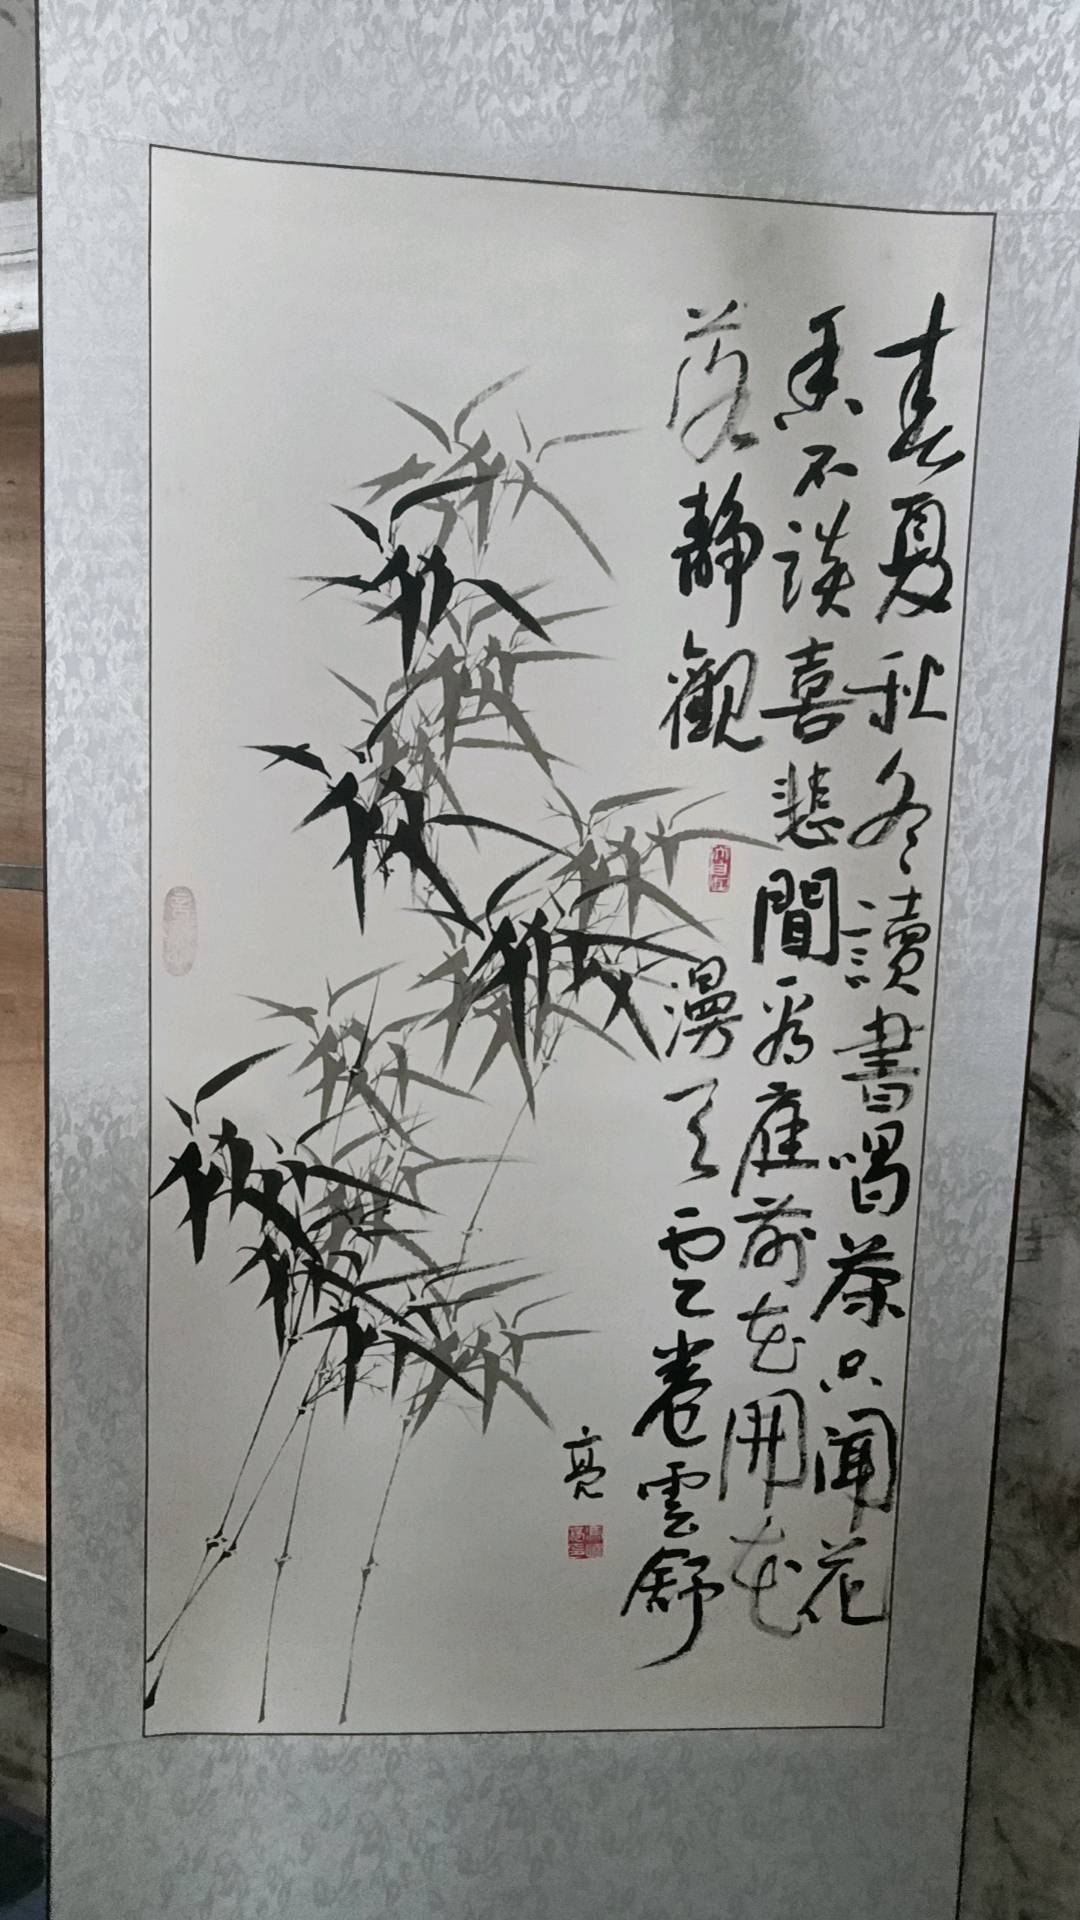 春夏秋冬讀書喝茶只聞花
香不談喜悲閒看庭前花開花
落靜觀漫天雲卷雲舒
亮